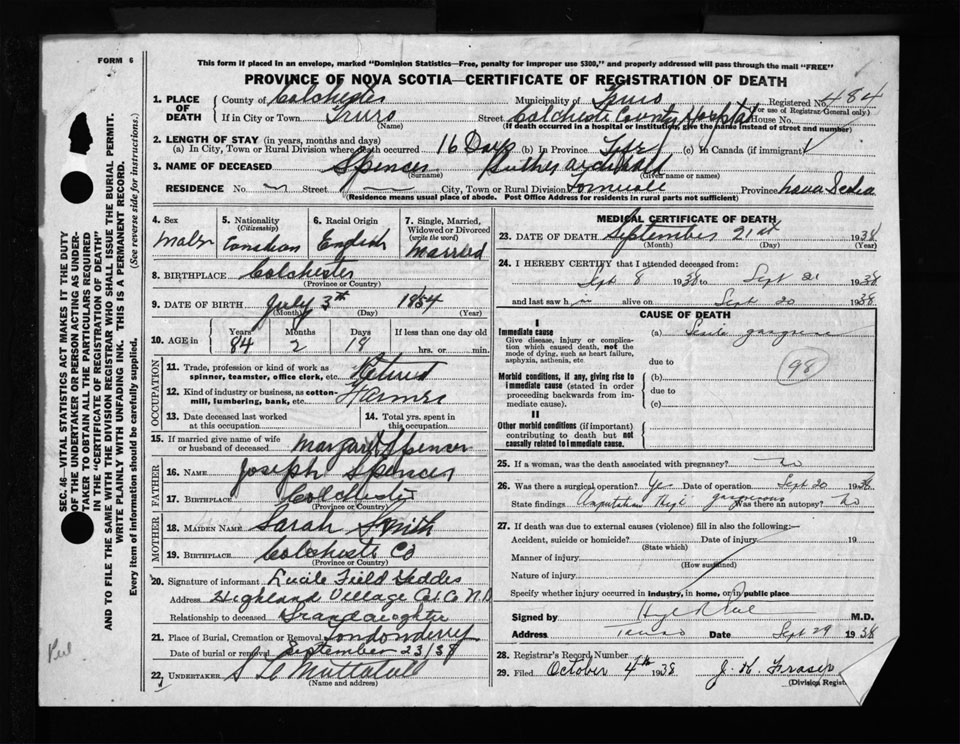 FORM 6
This form if placed in an envelope, marked "Dominion Statistics—Free, penalty for improper use $300," and properly addressed will pass through the mail "FREE"
PROVINCE OF NOVA SCOTIA—CERTIFICATE OF REGISTRATION OF DEATH
1. PLACE OF DEATH
County of Colchester Municipality of Truro Registered No. 484
(For use of Registrar General only)
If in City or Town Truro Street Colchester County Hospital House No.
(Name) (If death occurred in a hospital or institution, give the name instead of street and number)
2. LENGTH OF STAY (in years, months and days)
(a) In City, Town or Rural Division where death occurred 16 Days (b) In Province Life (c) In Canada (if immigrant)
3. NAME OF DECEASED Spencer Luther Archibald
(Surname) (Given name or names)
RESIDENCE No. Street City, Town or Rural Division Province Nova Scotia
(Residence means usual place of abode. Post Office Address for residents in rural parts not sufficient)
4. Sex
Male
5. Nationality
(Citizenship)
Canadian
6. Racial Origin
English
7. Single, Married, Widowed or Divorced
(write the word)
Married
8. BIRTHPLACE Colchester
(Province or Country)
9. DATE OF BIRTH July 3rd 1854
(Month) (Day) (Year)
10. AGE in
Years Months Days If less than one day old
84 2 18 hrs. or min.
OCCUPATION
11. Trade, profession or kind of work as spinner, teamster, office clerk, etc. Retired
12. Kind of industry or business, as cotton-mill, lumbering, bank, etc. Farmer
13. Date deceased last worked at this occupation
14. Total yrs. spent in this occupation
15. If married give name of wife or husband of deceased Margaret Spencer
FATHER
16. NAME Joseph Spencer
17. BIRTHPLACE Colchester
(Province or Country)
MOTHER
18. MAIDEN NAME Sarah Smith
19. BIRTHPLACE Colchester Co
(Province or Country)
20. Signature of informant Lucile Field Geddes
Address Highland Village Col. Co N.S.
Relationship to deceased Grandaughter
21. Place of Burial, Cremation or Removal Londonderry
Date of burial or removal September 23/38
22. UNDERTAKER
(Name and address)
MEDICAL CERTIFICATE OF DEATH
23. DATE OF DEATH September 21st 1938
(Month) (Day) (Year)
24. I HEREBY CERTIFY that I attended deceased from:
Sept 8 1938 to Sept 21 1938
and last saw him alive on Sept 20 1938
CAUSE OF DEATH
I
Immediate cause
Give disease, injury or complication which caused death, not the mode of dying, such as heart failure, asphyxia, asthenia, etc.
(a) Senile gangrene
98
due to
Morbid conditions, if any, giving rise to immediate cause (stated in order proceeding backwards from immediate cause).
(b)
due to
(c)
II
Other morbid conditions (if important) contributing to death but not causally related to immediate cause.
25. If a woman, was the death associated with pregnancy? no
26. Was there a surgical operation? Yes Date of operation Sept 20 1938
State findings Amputation Thigh gangrenous Was there an autopsy? No
27. If death was due to external causes (violence) fill in also the following:—
Accident, suicide or homicide? Date of injury 19
(State which)
Manner of injury
(How sustained)
Nature of injury
Specify whether injury occurred in industry, in home, or in public place
Signed by M.D.
Address Truro Date Sept 29 1938
28. Registrar's Record Number
29. Filed October 4th 1938 J. K. Fraser
(Division Registrar
SEC. 46—VITAL STATISTICS ACT MAKES IT THE DUTY
OF THE UNDERTAKER OR PERSON ACTING AS UNDERTAKER TO OBTAIN ALL THE PARTICULARS REQUIRED
IN THE "CERTIFICATE OF REGISTRATION OF DEATH"
AND TO FILE THE SAME WITH THE DIVISION REGISTRAR WHO SHALL ISSUE THE BURIAL PERMIT.
WRITE PLAINLY WITH UNFADING INK. THIS IS A PERMANENT RECORD.
Every item of information should be carefully supplied. (See reverse side for instructions.)